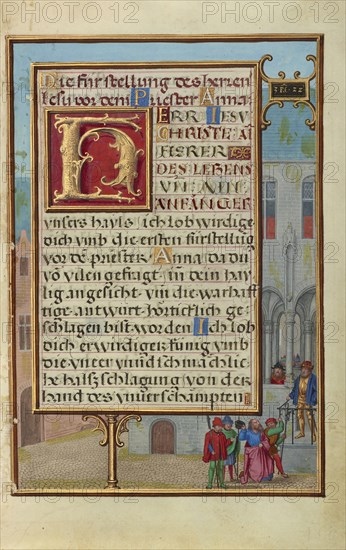 Die fürstellung des herren
Iesu vor dem Priester Anna.
HERR IESU
CHRISTE A
FIERER
DES LEBENS
VN̄ AIN
ANFÄNGER
vnsers hayls Ich lob wirdige
dich vmb die ersten fürstellūg
vor dē priester Anna da du
vō vilen gefragt in dein hay
lig angesicht vm̄ die warhaff
tige antwort hörticlich ge
schlagen bist worden Ich lob
dich erwirdiger künig vmb
die vneer vnd schmachliche
halßschlagung von der
hand des vnuerschampten